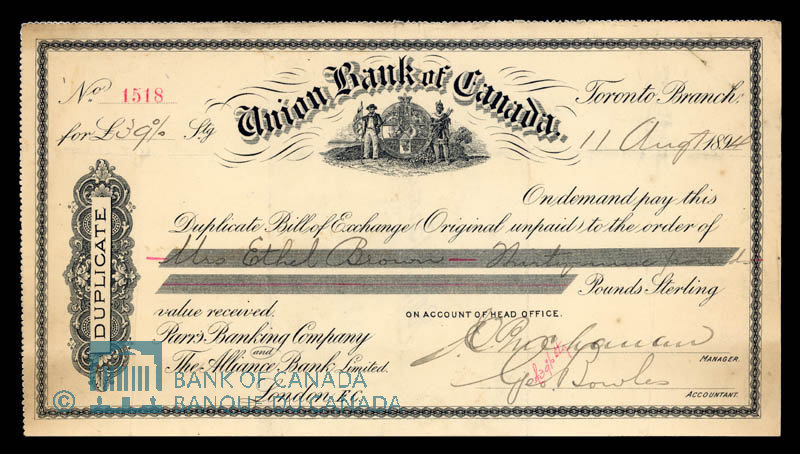 Union Bank of Canada.
No 1518
Toronto Branch.
for £39 % Stg
11 Augt 1894
DUPLICATE
On demand pay this
Duplicate Bill of Exchange (Original unpaid) to the order of
Mrs Ethel Brown — Thirty nine pounds
Pounds Sterling
value received.
ON ACCOUNT OF HEAD OFFICE.
Parr's Banking Company
and
The Alliance Bank Limited.
London, E.C.
MANAGER.
Geo. Bowles
ACCOUNTANT.
© BANK OF CANADA
BANQUE DU CANADA